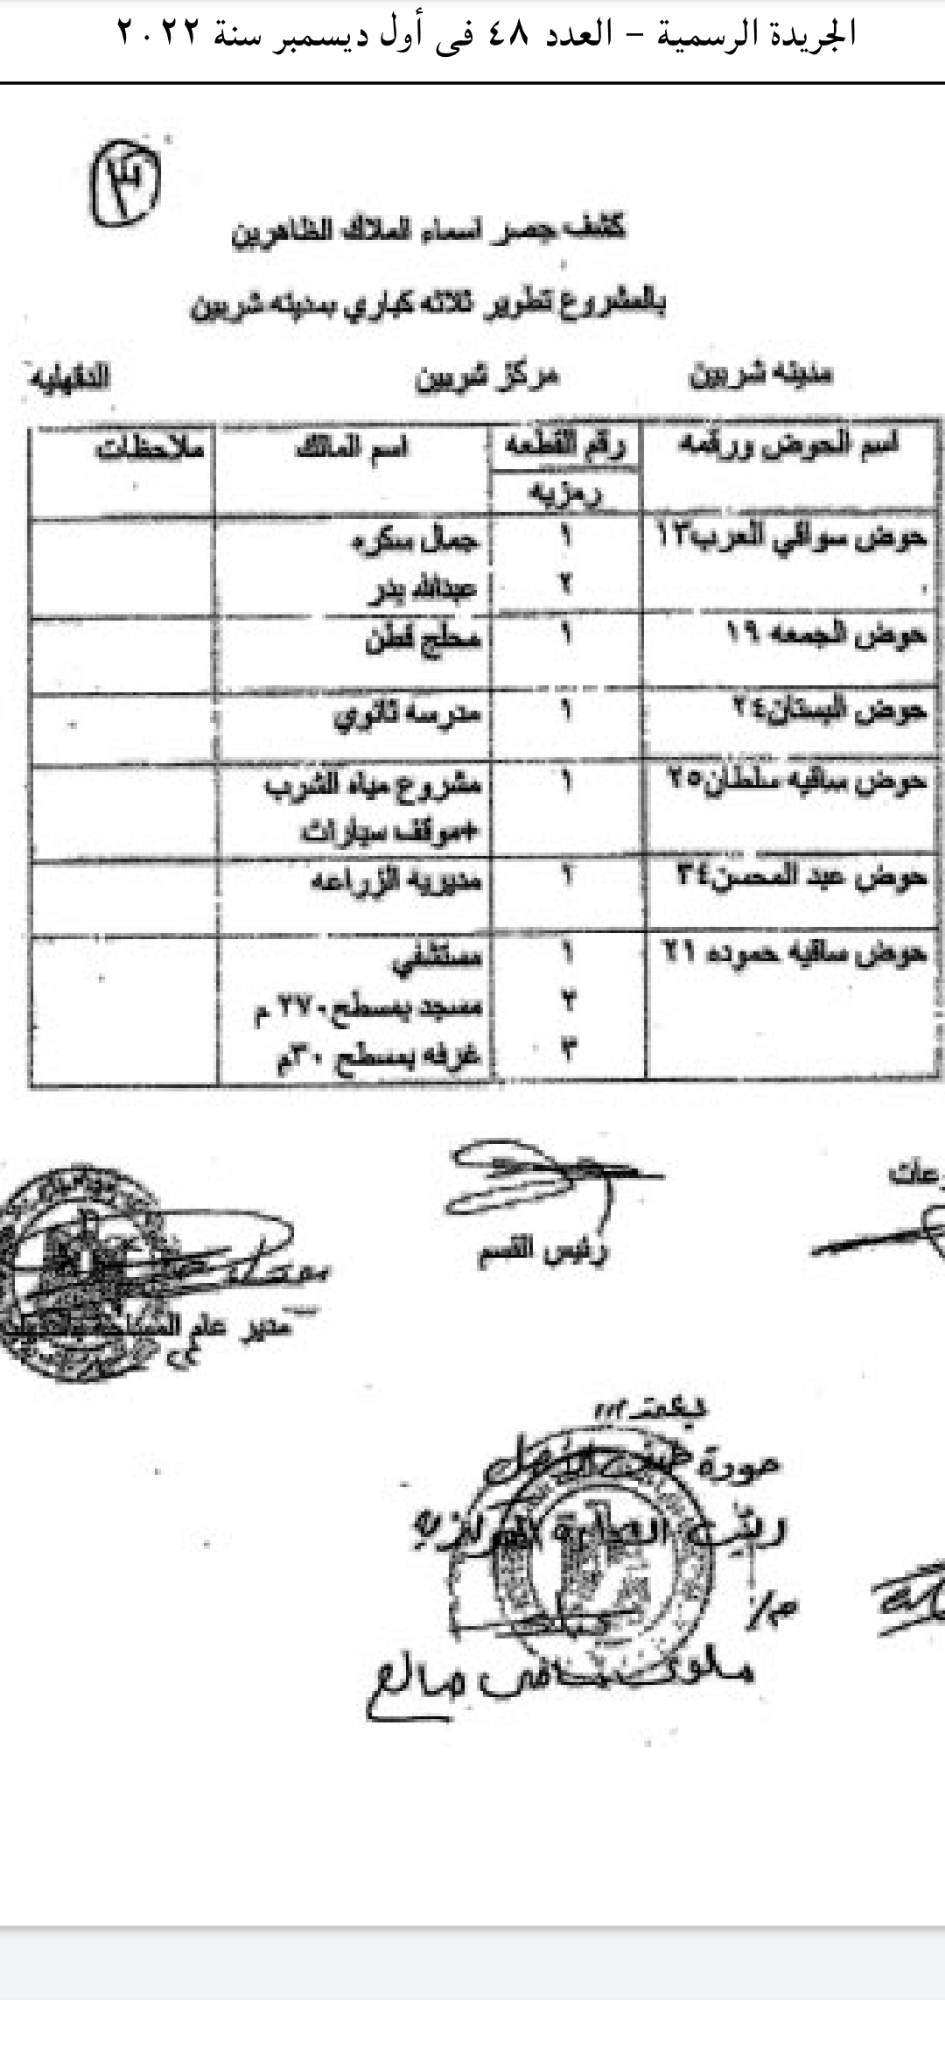 الجريدة الرسمية – العدد ٤٨ فى أول ديسمبر سنة ٢٠٢٢
٣
كشف حصر اسماء الملاك الظاهرين
بالمشروع تطوير ثلاثه كباري بمدينه شربين
مدينه شربين مركز شربين الدقهليه
اسم الحوض ورقمه رقم القطعه اسم المالك ملاحظات
رمزيه
حوض سواقي العرب١٣ ١ جمال سكره
٢ عبدالله بدر
حوض الجمعه ١٩ ١ محلج قطن
حوض البستان٢٤ ١ مدرسه ثانوي
حوض ساقيه سلطان٢٥ ١ مشروع مياه الشرب
+موقف سيارات
حوض عبد المحسن٣٤ ٢ مديرية الزراعه
حوض ساقيه حموده ٢١ ١ مستشفي
٢ مسجد بمسطح٢٧٠ م
٣ غرفه بمسطح ٣٠م
رئيس القسم
مدير عام المساحة
صورة طبق الأصل
رئيس الإدارة المركزية
صالح